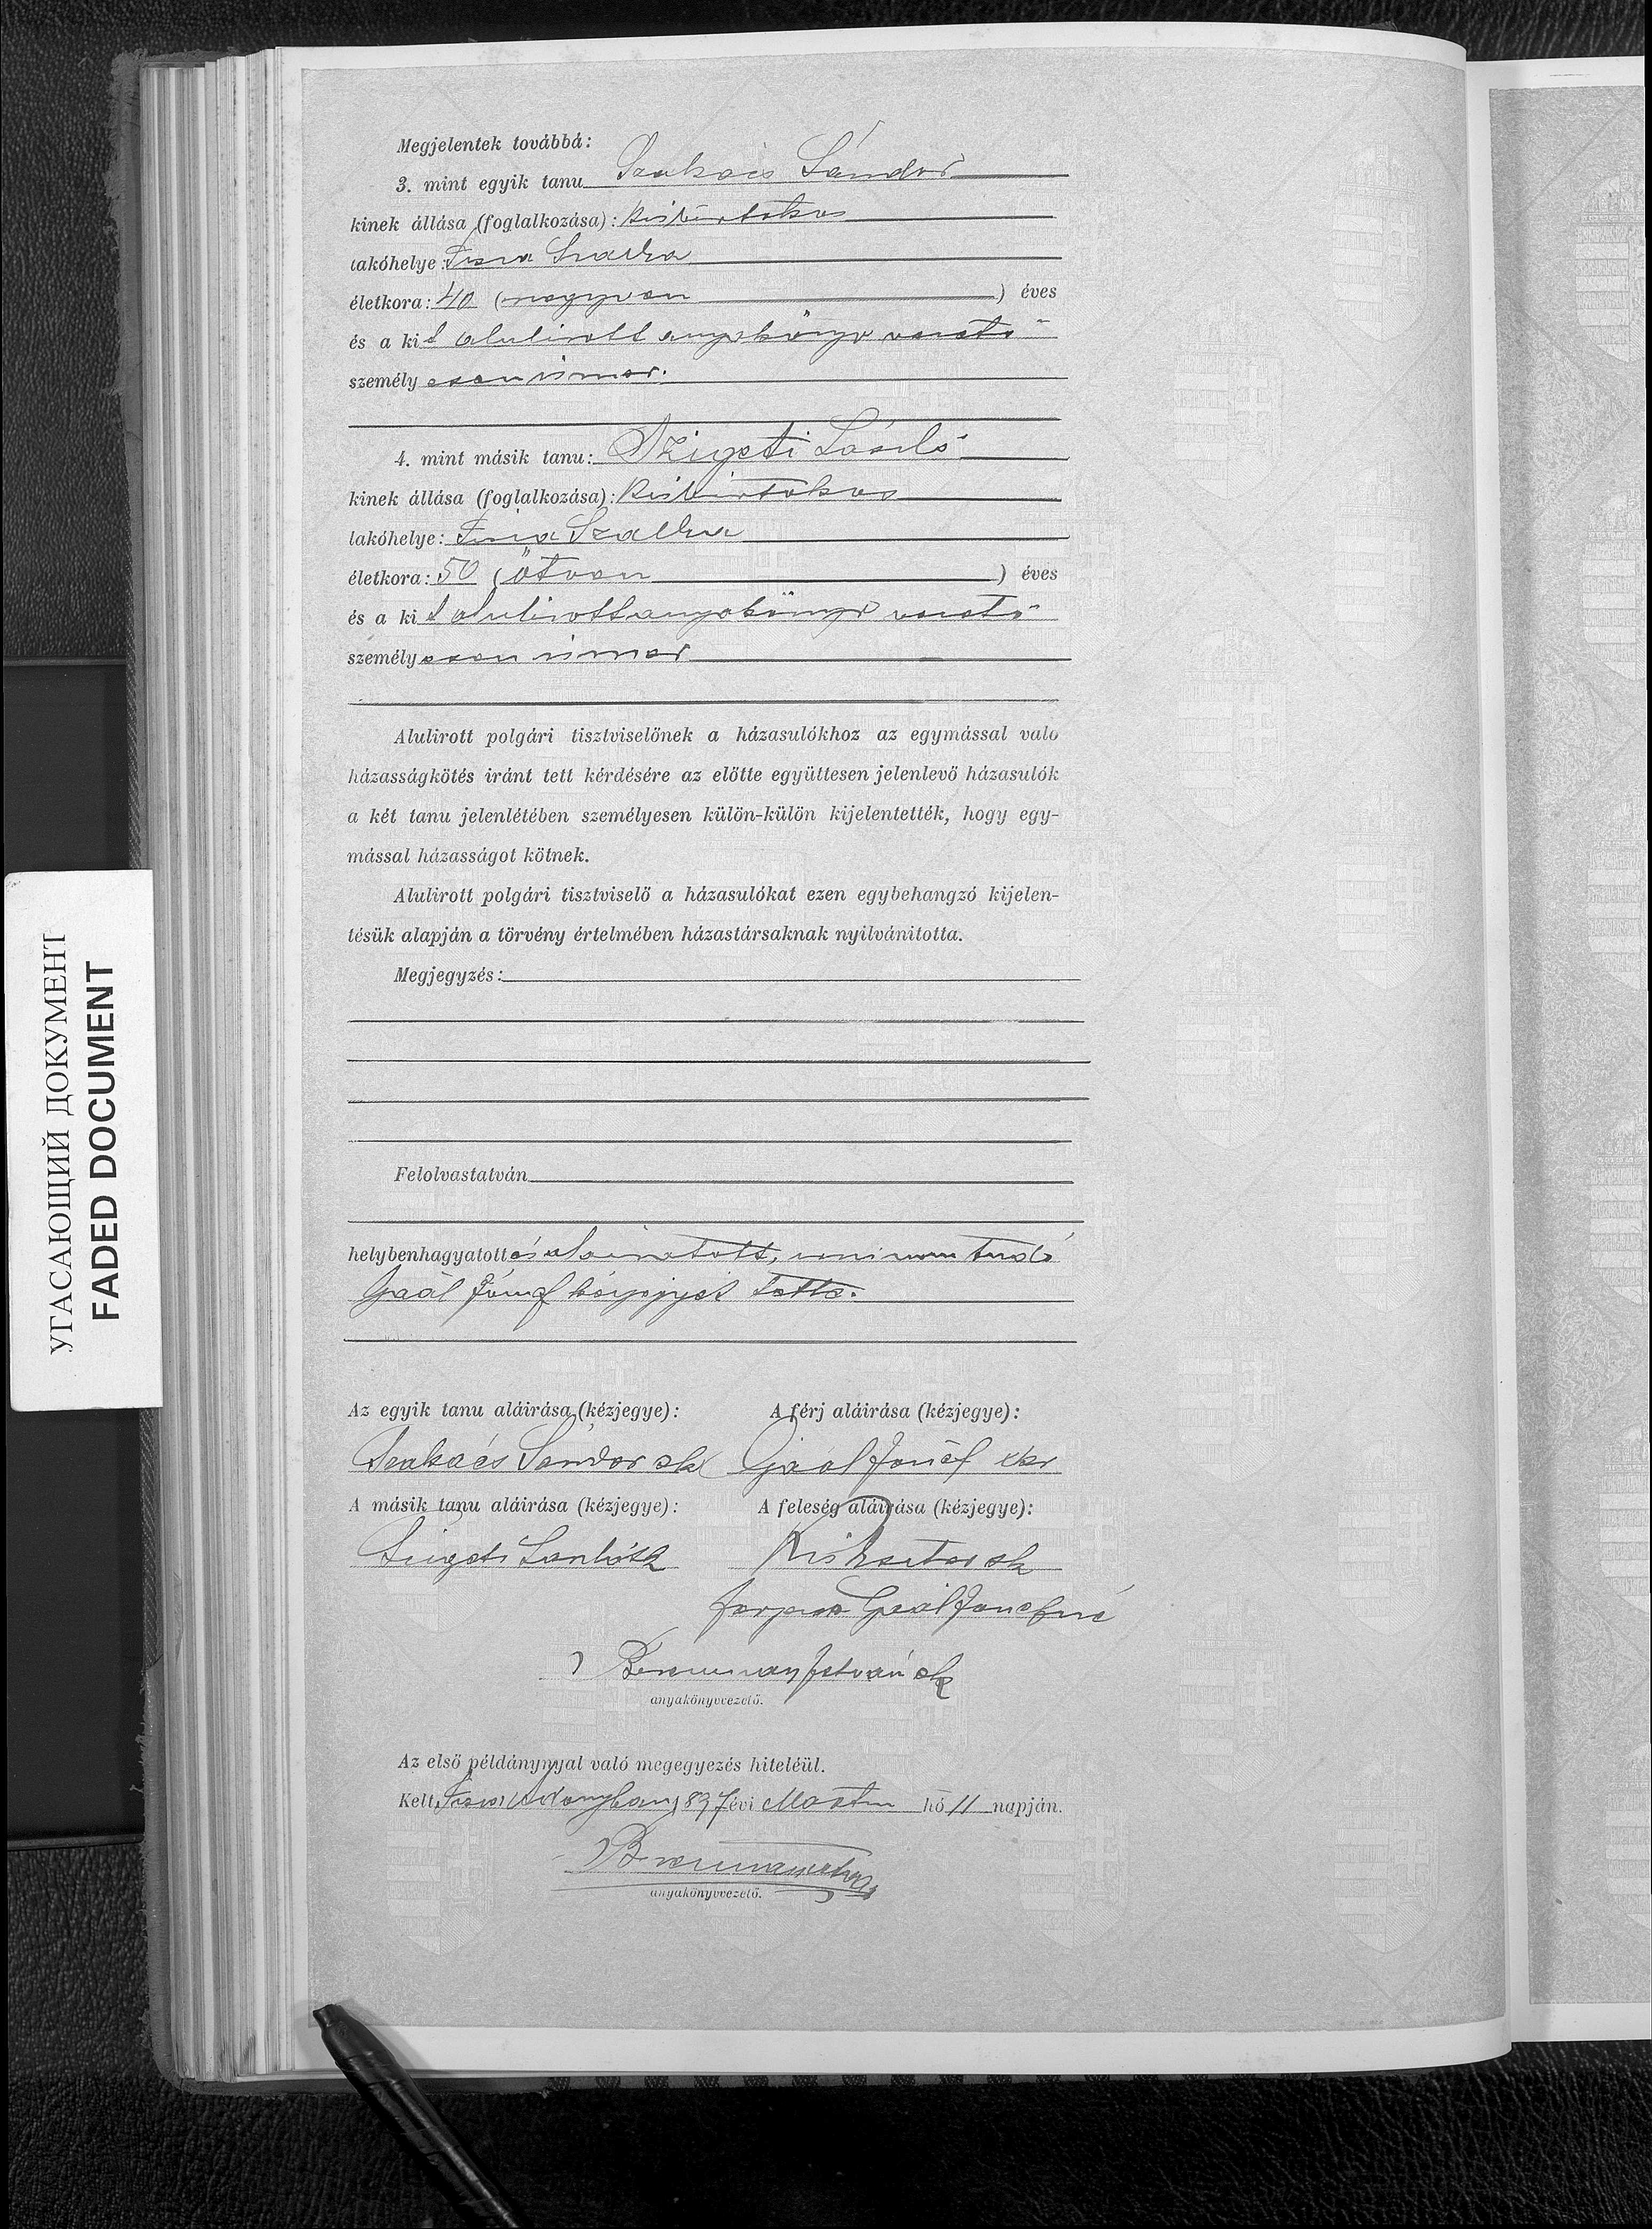 Megjelentek továbbá:
3. mint egyik tanu Szakács Sándor
kinek állása (foglalkozása): kisbirtokos
lakóhelye: Tisza Szalka
életkora: 40 (negyven) éves
és a kit alulirott anyakönyv vezető
személyesen ismer.
4. mint másik tanu: Szigeti László
kinek állása (foglalkozása): kisbirtokos
lakóhelye: Tisza Szalka
életkora: 50 (ötven) éves
és a kit alulirott anyakönyv vezető
személyesen ismer
Alulirott polgári tisztviselőnek a házasulókhoz az egymással való
házasságkötés iránt tett kérdésére az előtte együttesen jelenlevő házasulók
a két tanu jelenlétében személyesen külön-külön kijelentették, hogy egy-
mással házasságot kötnek.
Alulirott polgári tisztviselő a házasulókat ezen egybehangzó kijelen-
tésük alapján a törvény értelmében házastársaknak nyilvánitotta.
Megjegyzés:
Felolvastatván
helybenhagyatott és aláiratott, irni nem tudó
Gaál József kézjegyet tette.
Az egyik tanu aláirása (kézjegye): A férj aláirása (kézjegye):
Szakács Sándor sk Gaál József
A másik tanu aláirása (kézjegye): A feleség aláirása (kézjegye):
Szigeti László sk Kis Eszter sk
Gaál Józsefné
István sk
anyakönyvvezető.
Az első példánynyal való megegyezés hiteléül.
Kelt Tisza Adonyban, 1897 évi hó 11 napján.
anyakönyvvezető.
УГАСАЮЩИЙ ДОКУМЕНТ
FADED DOCUMENT